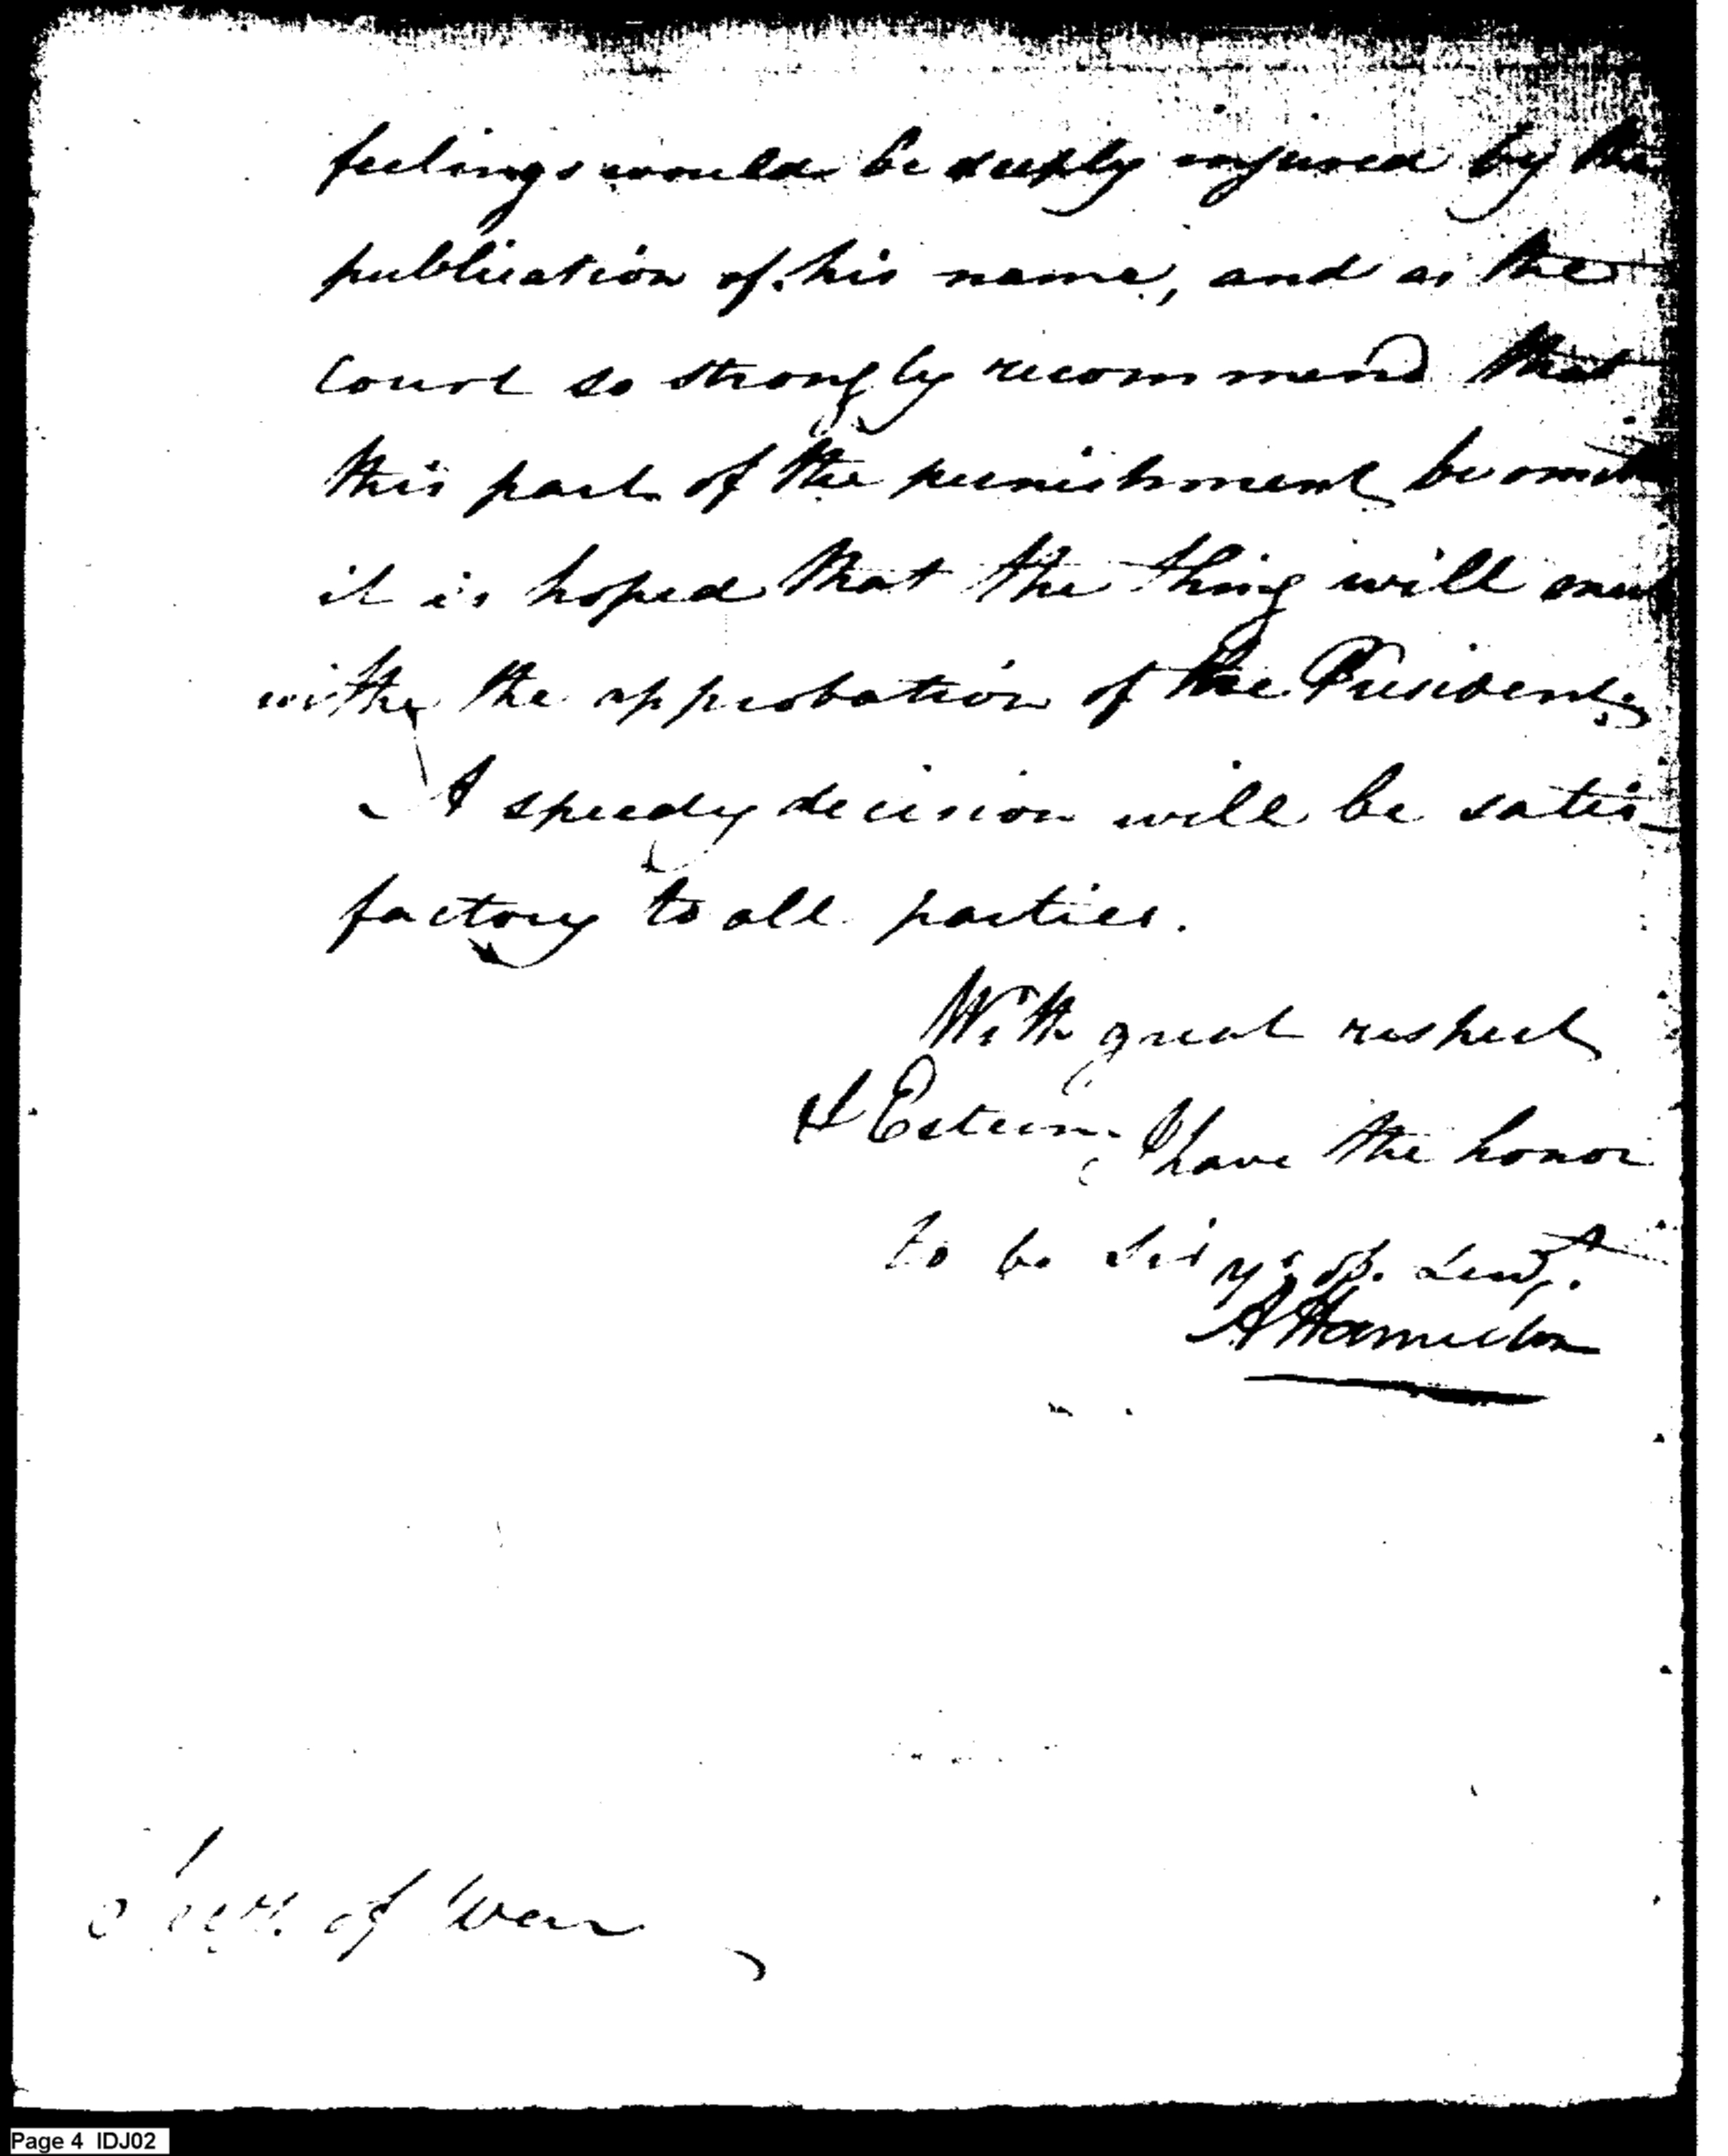 feelings would be deeply injured by the
publication of his name, and as the
Court so strongly recommend that
this part of the punishment be omit
it is hoped that the thing will meet
with the approbation of the President.
A speedy decision will be satis-
factory to all parties.
With great respect
& Esteem I have the honor
to be Sir yr. ob. Servt.
A Hamilton
Secy. of War
Page 4 IDJ02